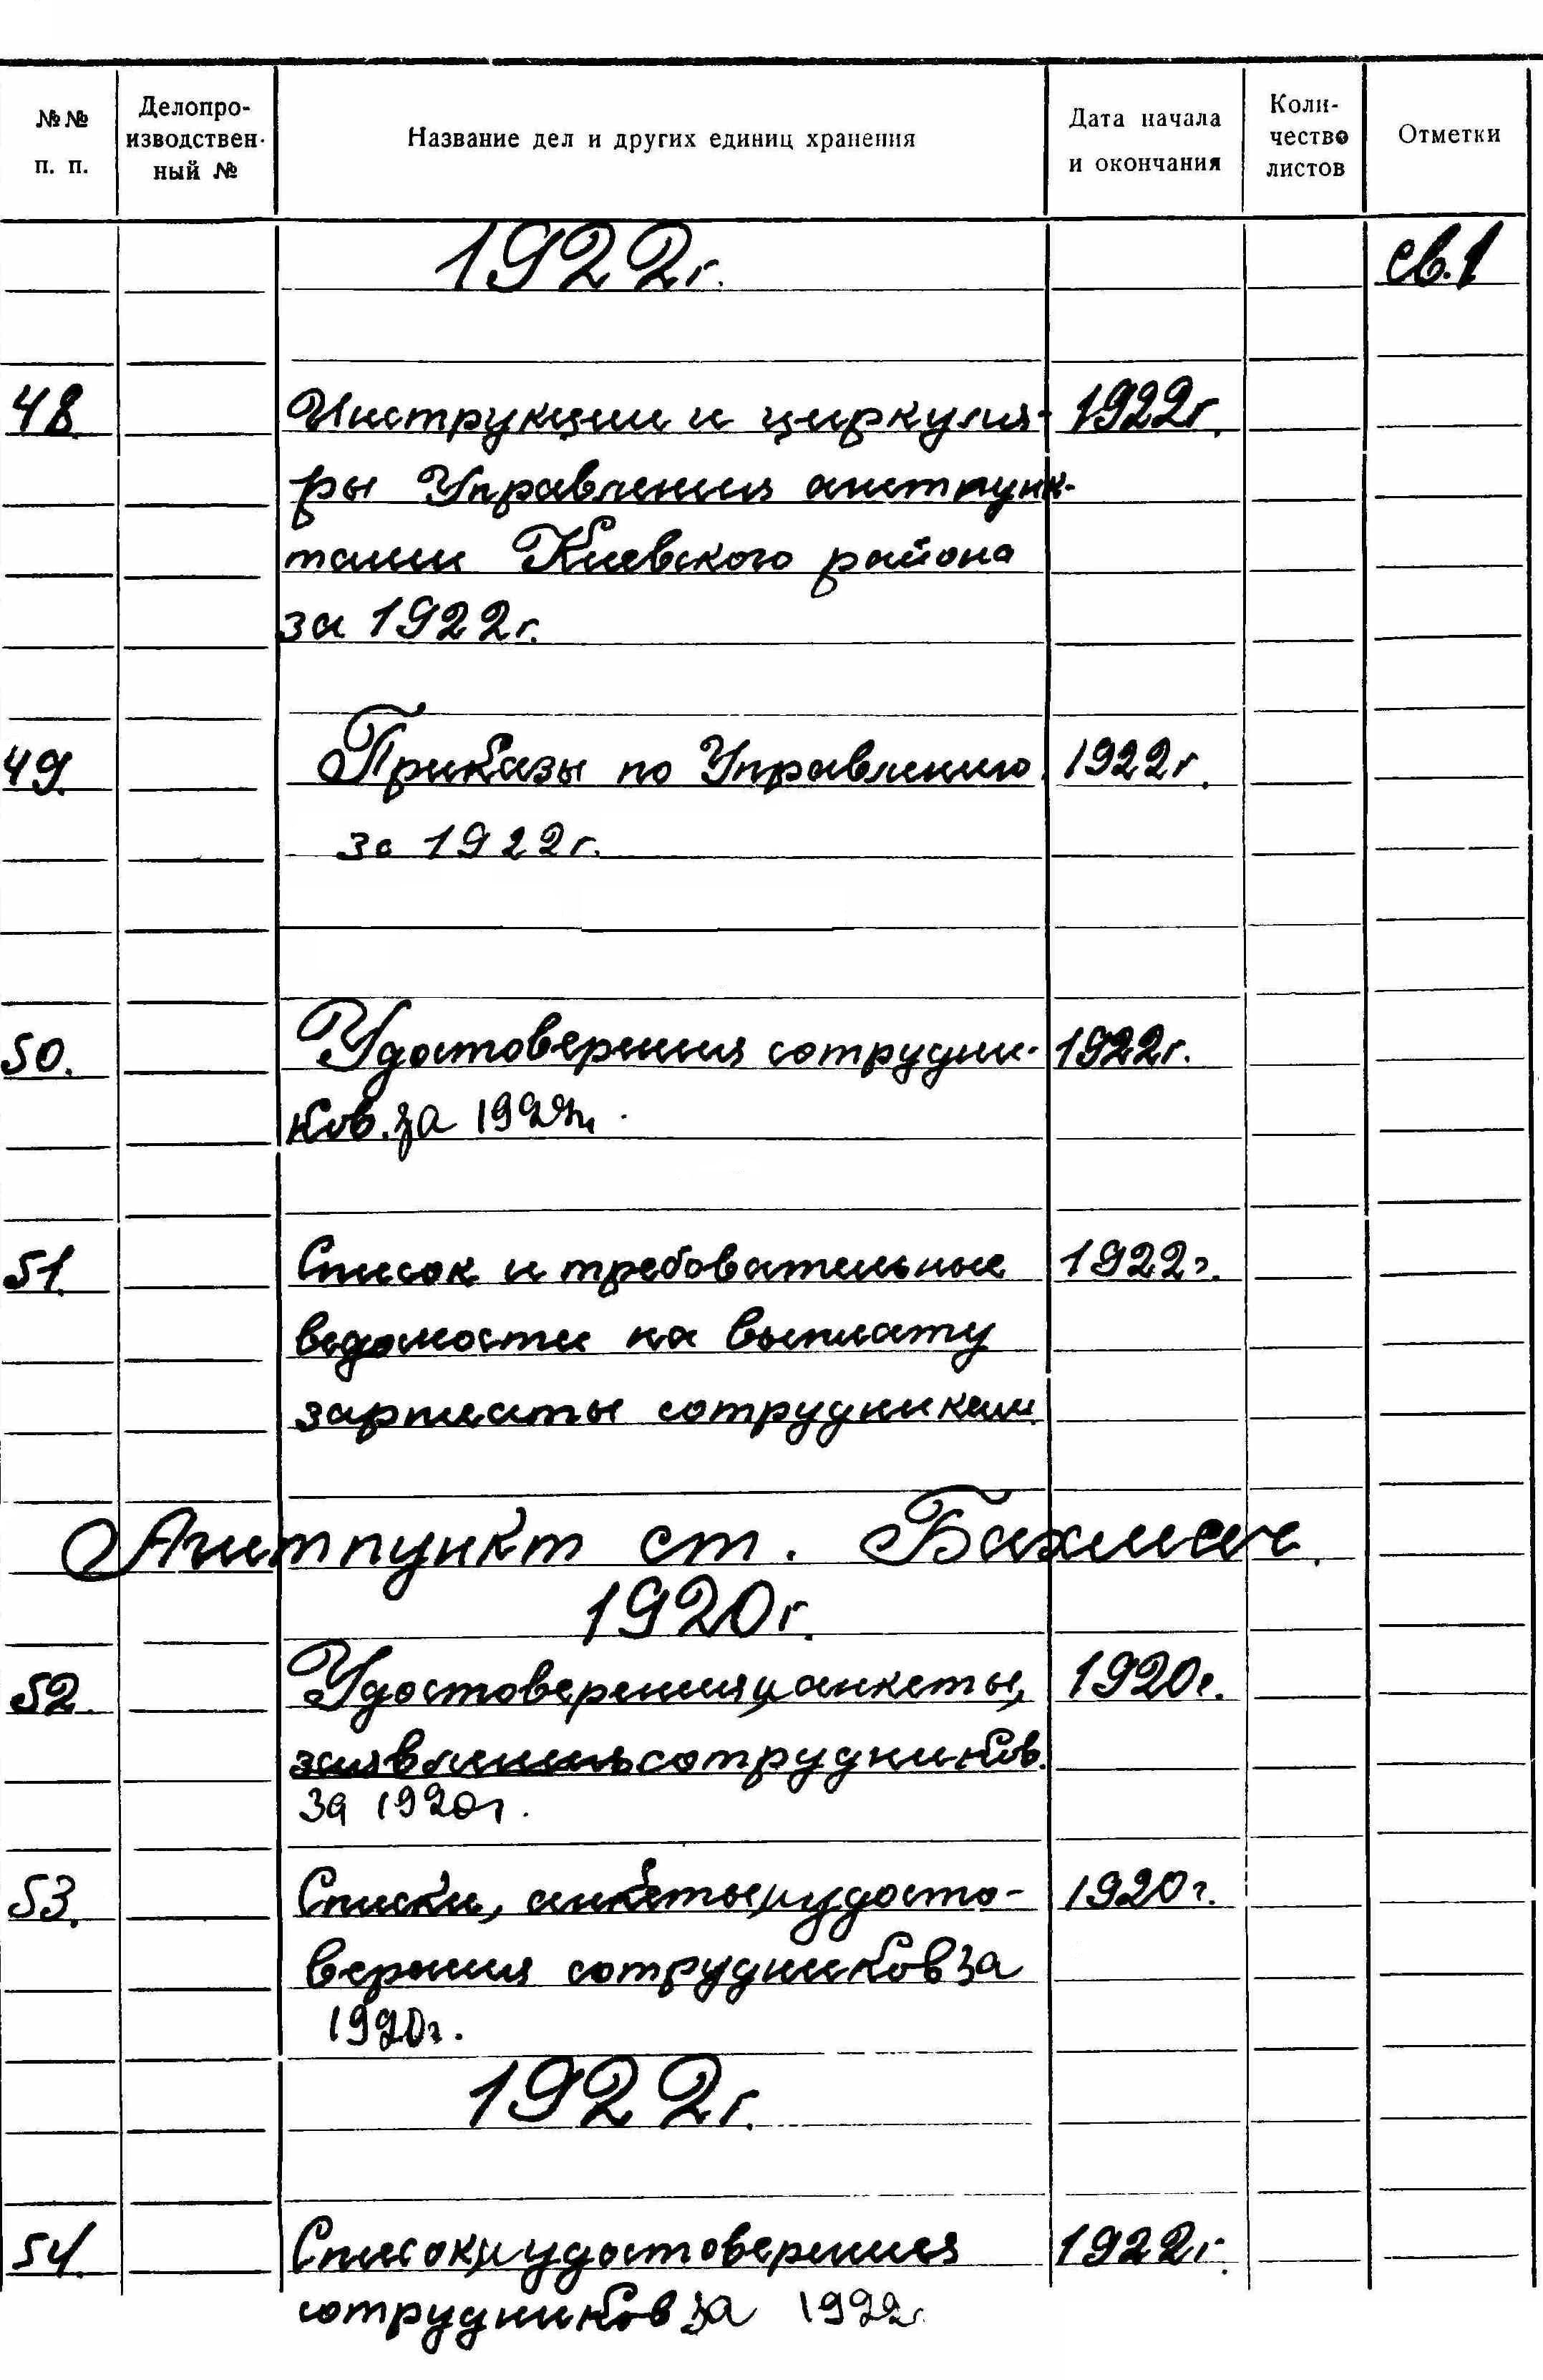 №№ п. п. Делопро-изводствен-ный № Название дел и других единиц хранения Дата начала и окончания Коли-чество листов Отметки
1922г. св.1
48. Инструкции и циркуля- 1922г.
ры Управления агитпунк-
тами Киевского района
за 1922г.
49. Приказы по Управлению 1922г.
за 1922г.
50. Удостоверения сотрудни- 1922г.
ков за 1922г.
51. Список и требовательные 1922г.
ведомости на выплату
зарплаты сотрудникам.
Агитпункт ст. Бахмач.
1920г.
52. Удостоверения, анкеты, 1920г.
заявления сотрудников
за 1920г.
53. Списки, анкеты, удосто- 1920г.
верения сотрудников за
1920г.
1922г.
54. Список и удостоверения 1922г.
сотрудников за 1922г.